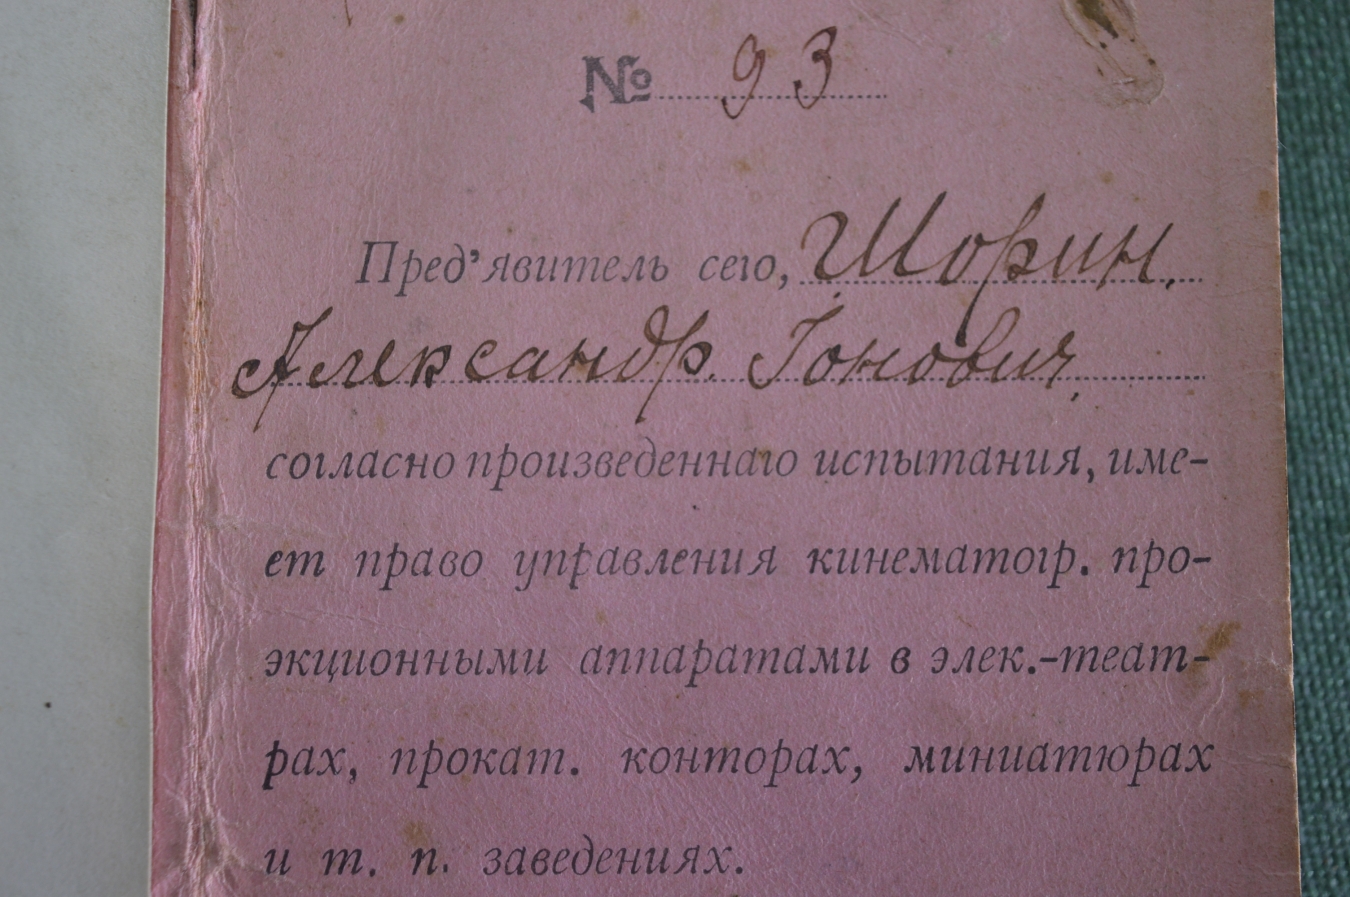 № 93
Пред'явитель сего, Шорин,
Александр Іонович,
согласно произведеннаго испытания, име-
ет право управления кинематогр. про-
экционными аппаратами в элек.-театр-
рах, прокат. конторах, миниатюрах
и т. п. заведениях.